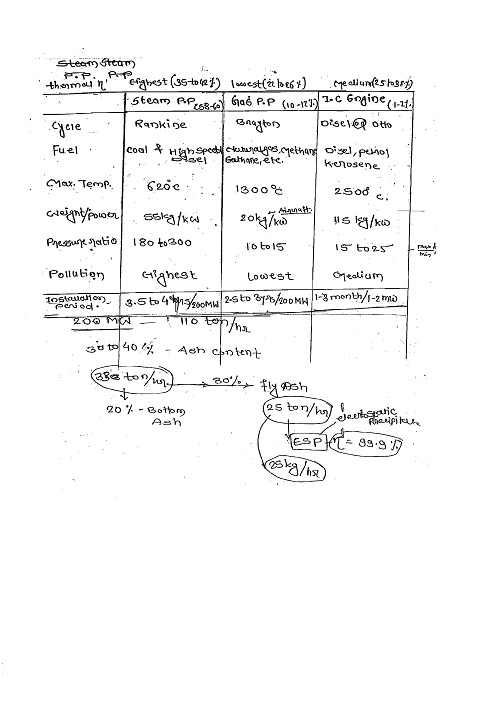 Steam Steam
P.P. P.P
thermal η Highest (35 to 42%) lowest (21 to 26%) Medium (25 to 38%)
Steam P.P (58-60) Gas P.P (10-12%) I.C Engine (1-2%)
Cycle Rankine Brayton Disel or Otto
Fuel coal & High Speed Disel Natural gas, Methane, etc. Disel, petrol Kerosene
Max. Temp. 620°c 1300°c 2500°c.
Weight/power 55kg/kw 20kg/kw 115 kg/kw
Pressure ratio 180 to 300 10 to 15 15 to 25
Pollution Highest Lowest Medium
Installation period. 3.5 to 4 yrs/200MW 2.5 to 3yrs/200 MW 1-3 month/1-2 mw
200 MW — 110 ton/hr
30 to 40 % - Ash content
ton/hr. 80% Fly Ash
20% - Bottom Ash
25 ton/hr
electrostatic Precipitator
ESP η = 99.9 %
25 kg/hr